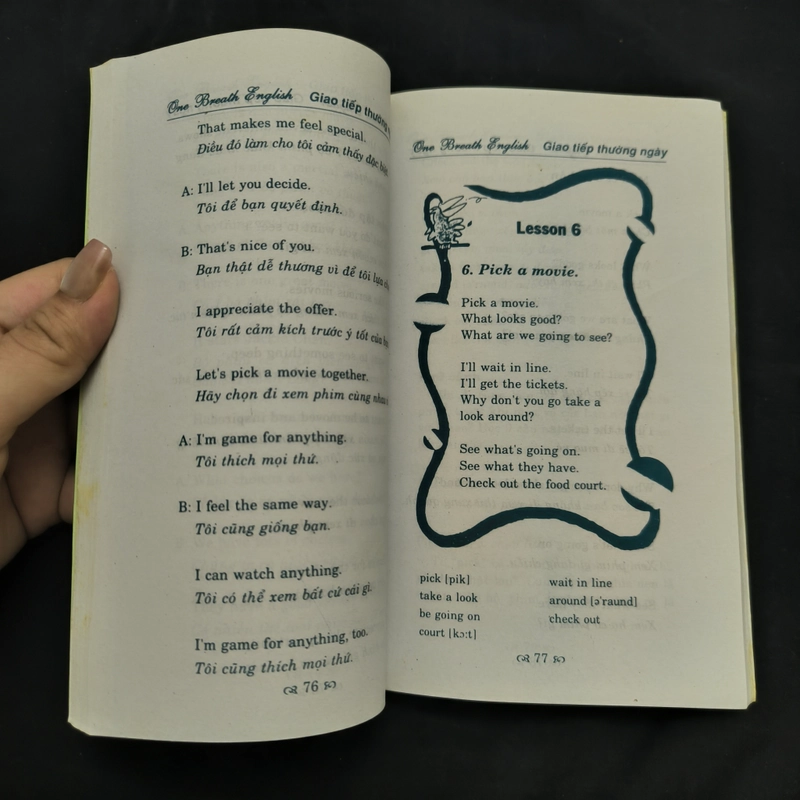 One Breath English Giao tiếp thường
That makes me feel special.
Điều đó làm cho tôi cảm thấy đặc biệt
A: I'll let you decide.
Tôi để bạn quyết định.
B: That's nice of you.
Bạn thật dễ thương vì để tôi lựa
I appreciate the offer.
Tôi rất cảm kích trước ý tốt của
Let's pick a movie together.
Hãy chọn đi xem phim cùng nhau
A: I'm game for anything.
Tôi thích mọi thứ.
B: I feel the same way.
Tôi cũng giống bạn.
I can watch anything.
Tôi có thể xem bất cứ cái gì.
I'm game for anything, too.
Tôi cũng thích mọi thứ.
76
One Breath English Giao tiếp thường ngày
Lesson 6
6. Pick a movie.
Pick a movie.
What looks good?
What are we going to see?
I'll wait in line.
I'll get the tickets.
Why don't you go take a
look around?
See what's going on.
See what they have.
Check out the food court.
pick [pik] wait in line
take a look around [ə'raund]
be going on check out
court [kɔ:t]
77